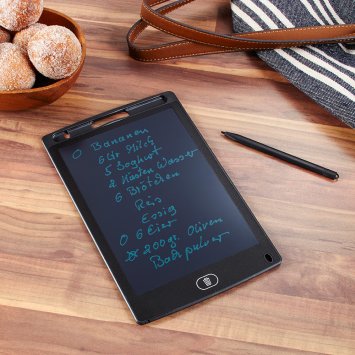 O Bananen
6 Ltr Milch
5 Joghurt
2 Kästen Wasser
6 Brötchen
Reis
Essig
O 6 Eier
200 gr. Oliven
Backpulver